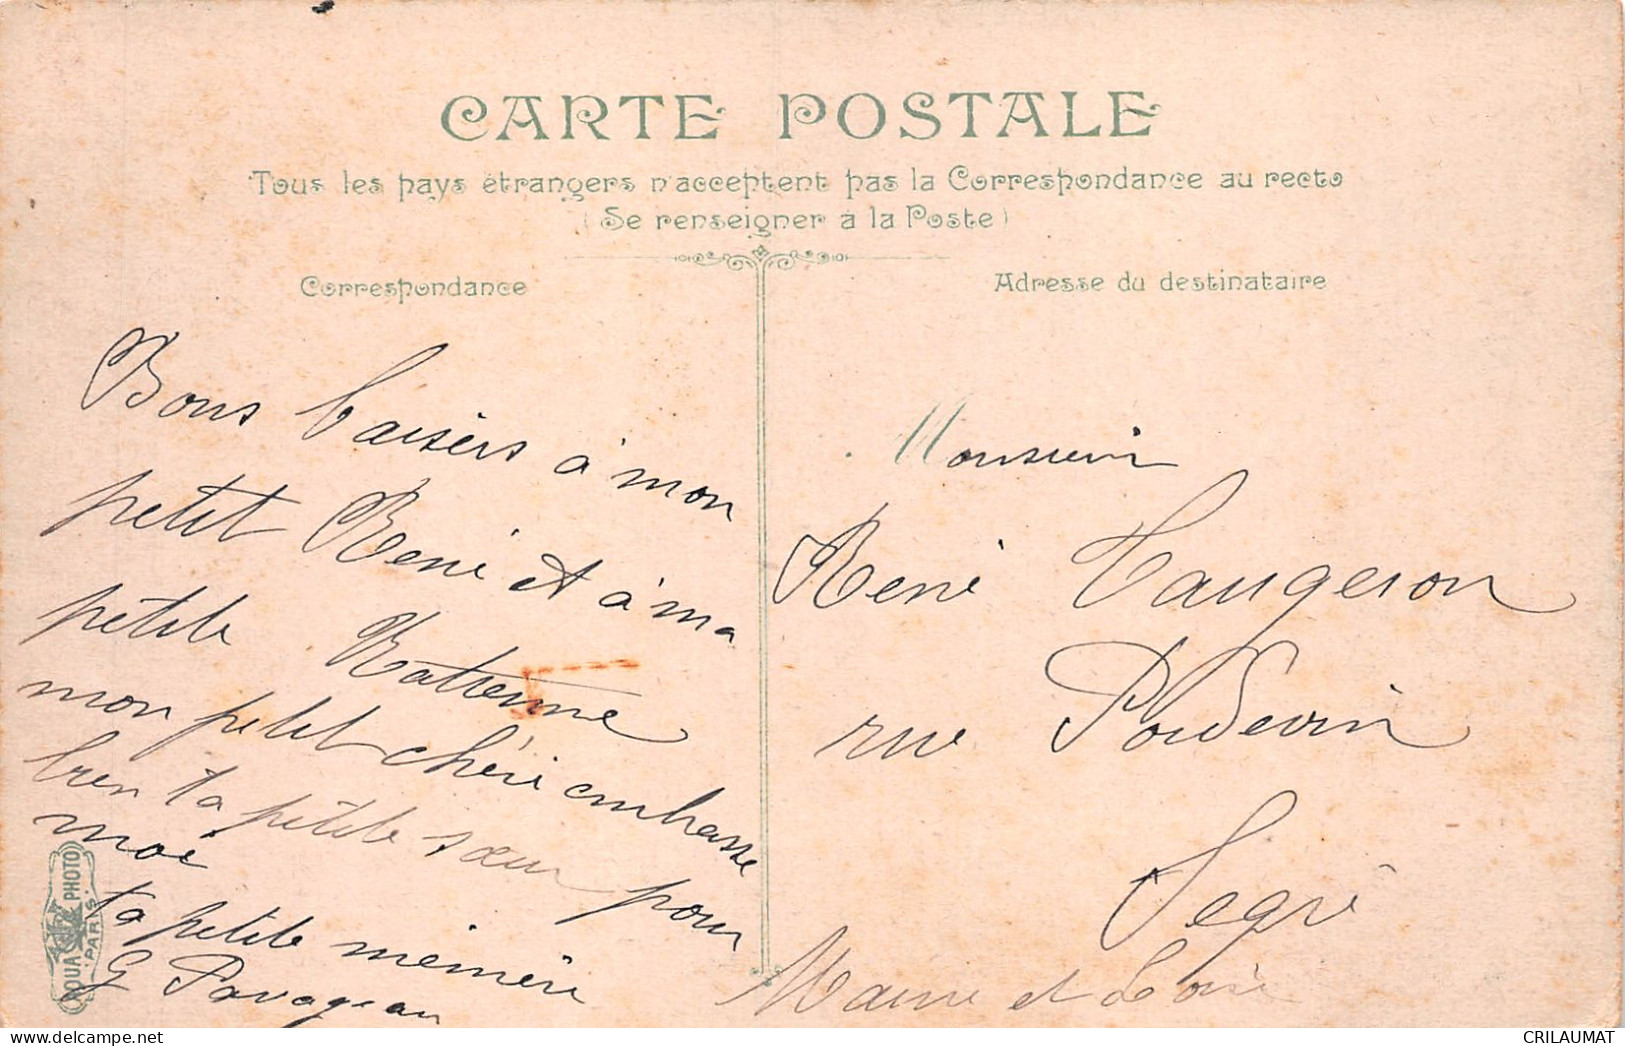 CARTE POSTALE
Tous les pays étrangers n'acceptent pas la Correspondance au recto
(Se renseigner à la Poste)
Correspondance
Bons baisers à mon
petit René et à ma
petite
mon petit chéri embrasse
bien ta petite sœur pour
moi
ta petite mémère
G Pavageau
Adresse du destinataire
Monsieur
René Taugeron
rue Poidevin
Segré
Maine et Loire
PHOTO
PARIS
CRILAUMAT